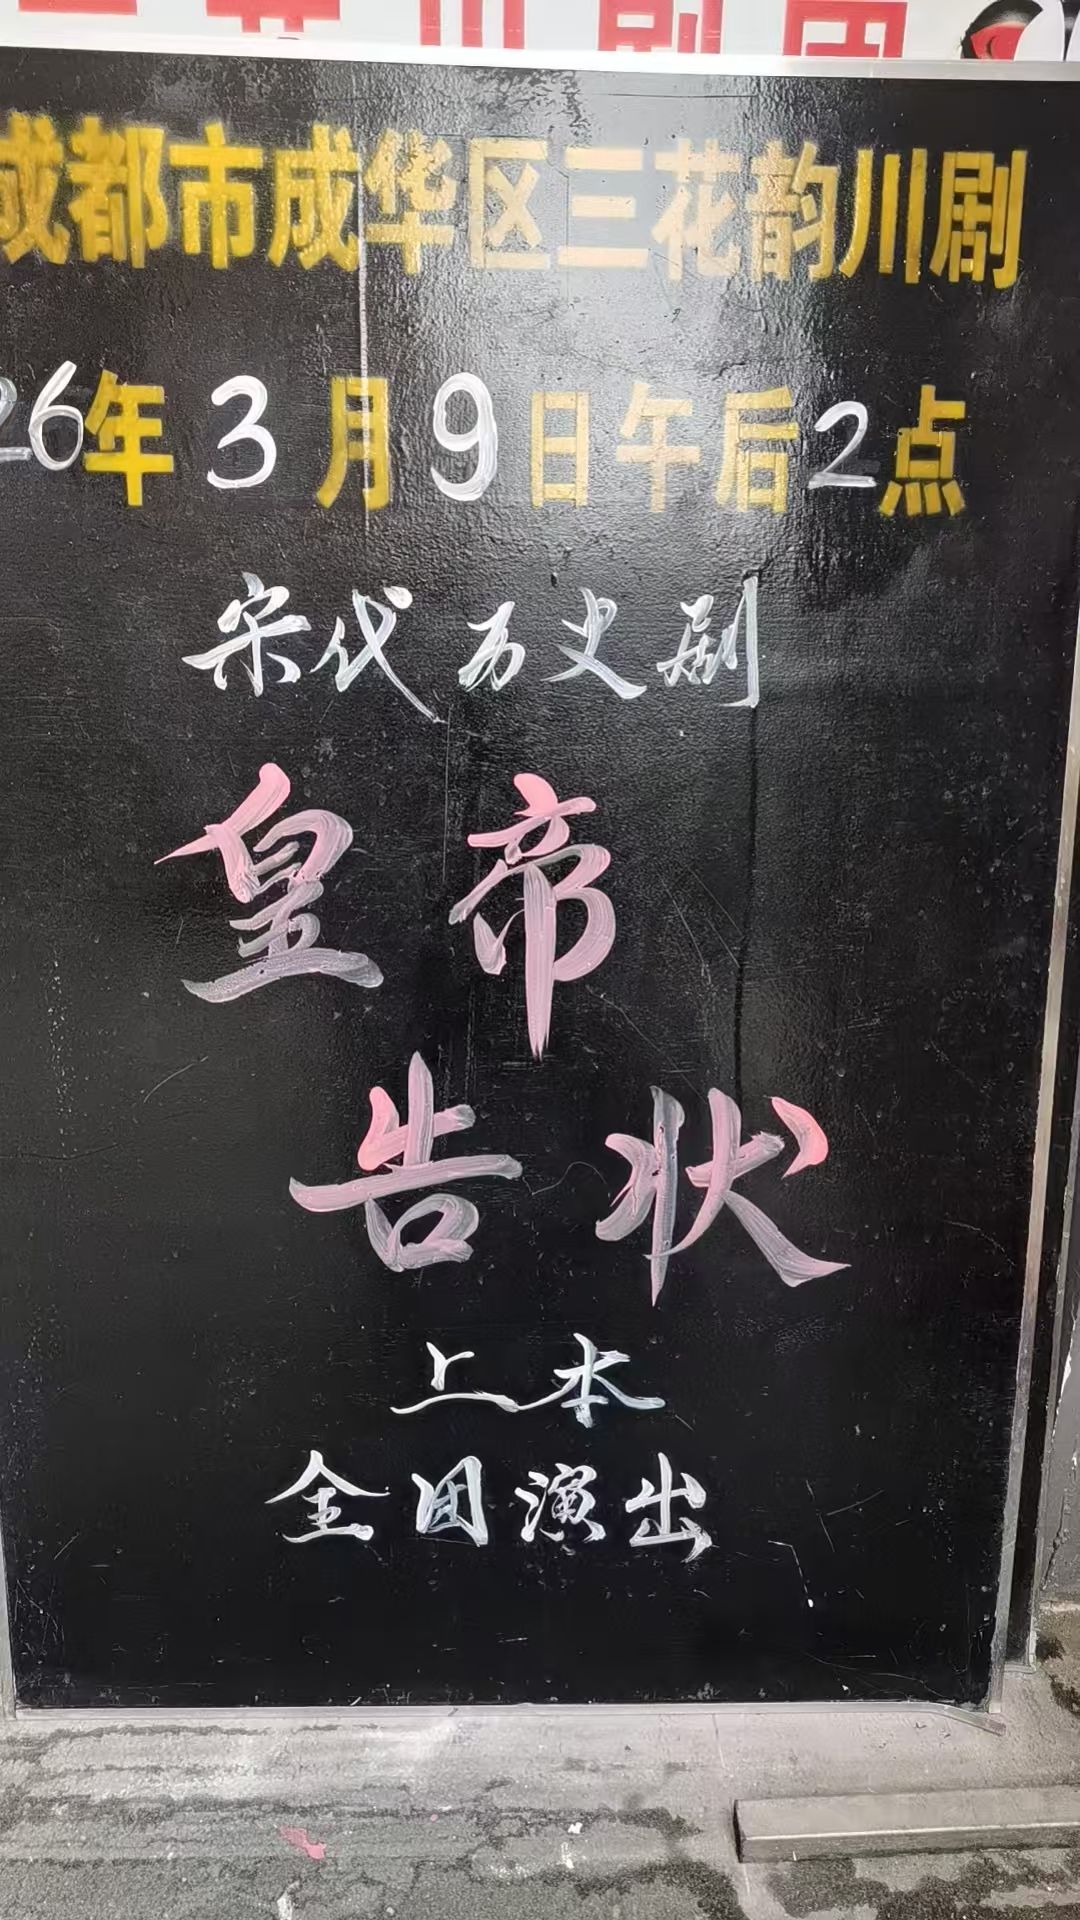 川剧团
成都市成华区三花韵川剧
26年3月9日午后2点
宋代历史剧
皇帝
告状
上本
全团演出